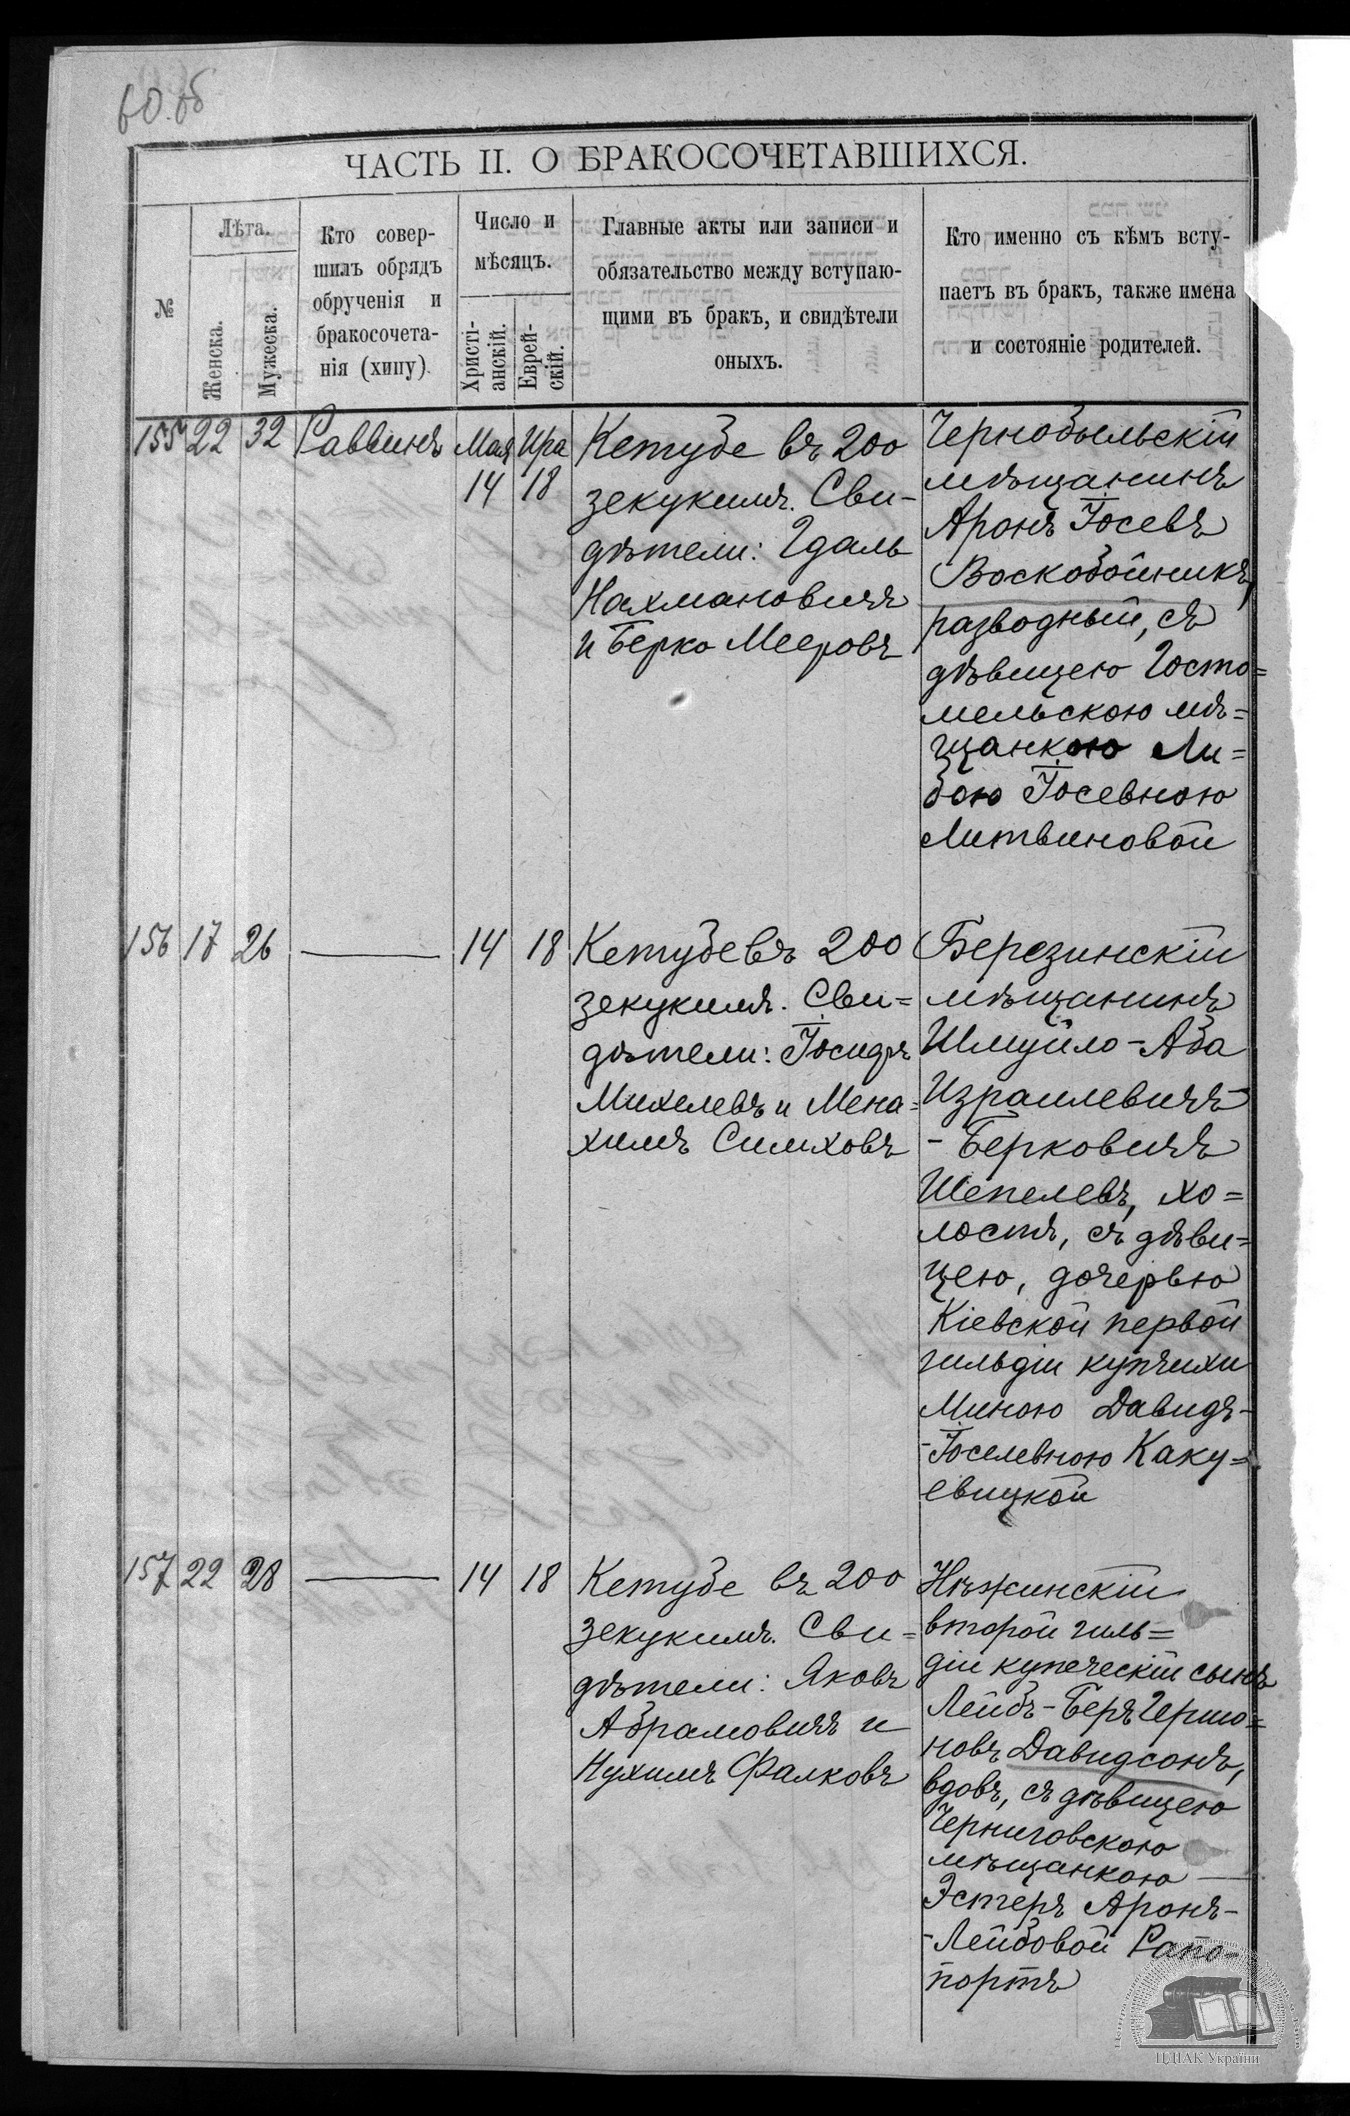 60 об
ЧАСТЬ II. О БРАКОСОЧЕТАВШИХСЯ.
№
Лѣта.
Женска.
Мужеска.
Кто совер-
шилъ обрядъ
обрученія и
бракосочета-
нія (хипу).
Число и
мѣсяцъ.
Христі-
анскій.
Еврей-
скій.
Главные акты или записи и
обязательство между вступаю-
щими въ бракъ, и свидѣтели
оныхъ.
Кто именно съ кѣмъ всту-
паетъ въ бракъ, также имена
и состояніе родителей.
155 22 32 Раввинъ Мая Ира
14 18
Кетубе въ 200
зекукимъ. Сви-
дѣтели: Гдаль
Нахмановичъ
и Берко Мееровъ
Чернобыльскій
мѣщанинъ
Аронъ Іосевъ
Воскобойникъ,
разводный, съ
дѣвицею Госто=
мельскою мѣ=
щанкою Ли=
бою Іосевною
Литвиновой
156 17 26 — 14 18
Кетубе въ 200
зекукимъ. Сви=
дѣтели: Іосифъ
Михелевъ и Мена=
химъ Симховъ
Березинскій
мѣщанинъ
Шмуйло-Аба
Израилевичъ-
-Берковичъ
Шепелевъ, хо=
лостъ, съ дѣви=
цею, дочерью
Кіевской первой
гильдіи купчихи
Миною Давидъ-
-Іоселевною Каку=
евицкой
157 22 28 — 14 18
Кетубе въ 200
зекукимъ. Сви=
дѣтели: Яковъ
Абрамовичъ и
Нухимъ Фалковъ
Нѣжинскій
второй гиль=
діи купеческій сынъ
Лейбъ-Беръ Гершо=
новъ Давидсонъ,
вдовъ, съ дѣвицею
Черниговскою
мѣщанкою —
Эстеръ Аронъ-
-Лейбовой Рапо-
портъ
ЦДІАК України